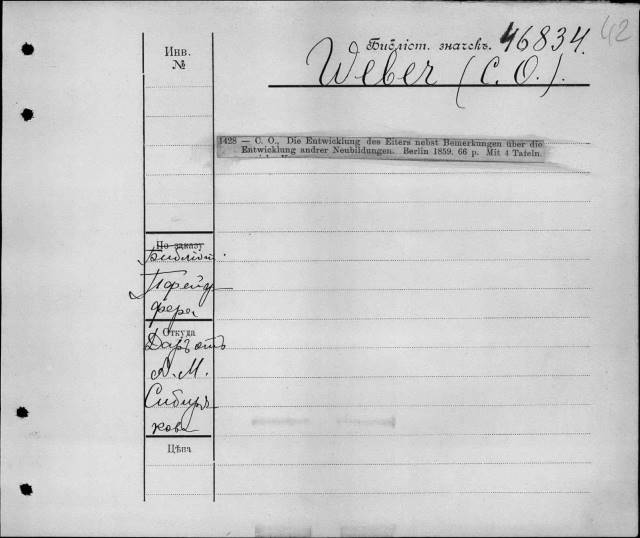 42
Инв.
№
Библіот. значекъ. 46834.
Weber (C. O.).
1428 — C. O., Die Entwicklung des Eiters nebst Bemerkungen über die
Entwicklung andrer Neubildungen. Berlin 1859. 66 p. Mit 4 Tafeln.
По заказу
Библіот.
Пфейф
фера
Откуда
Даръ отъ
А. М.
Сибиря
кова
Цѣна